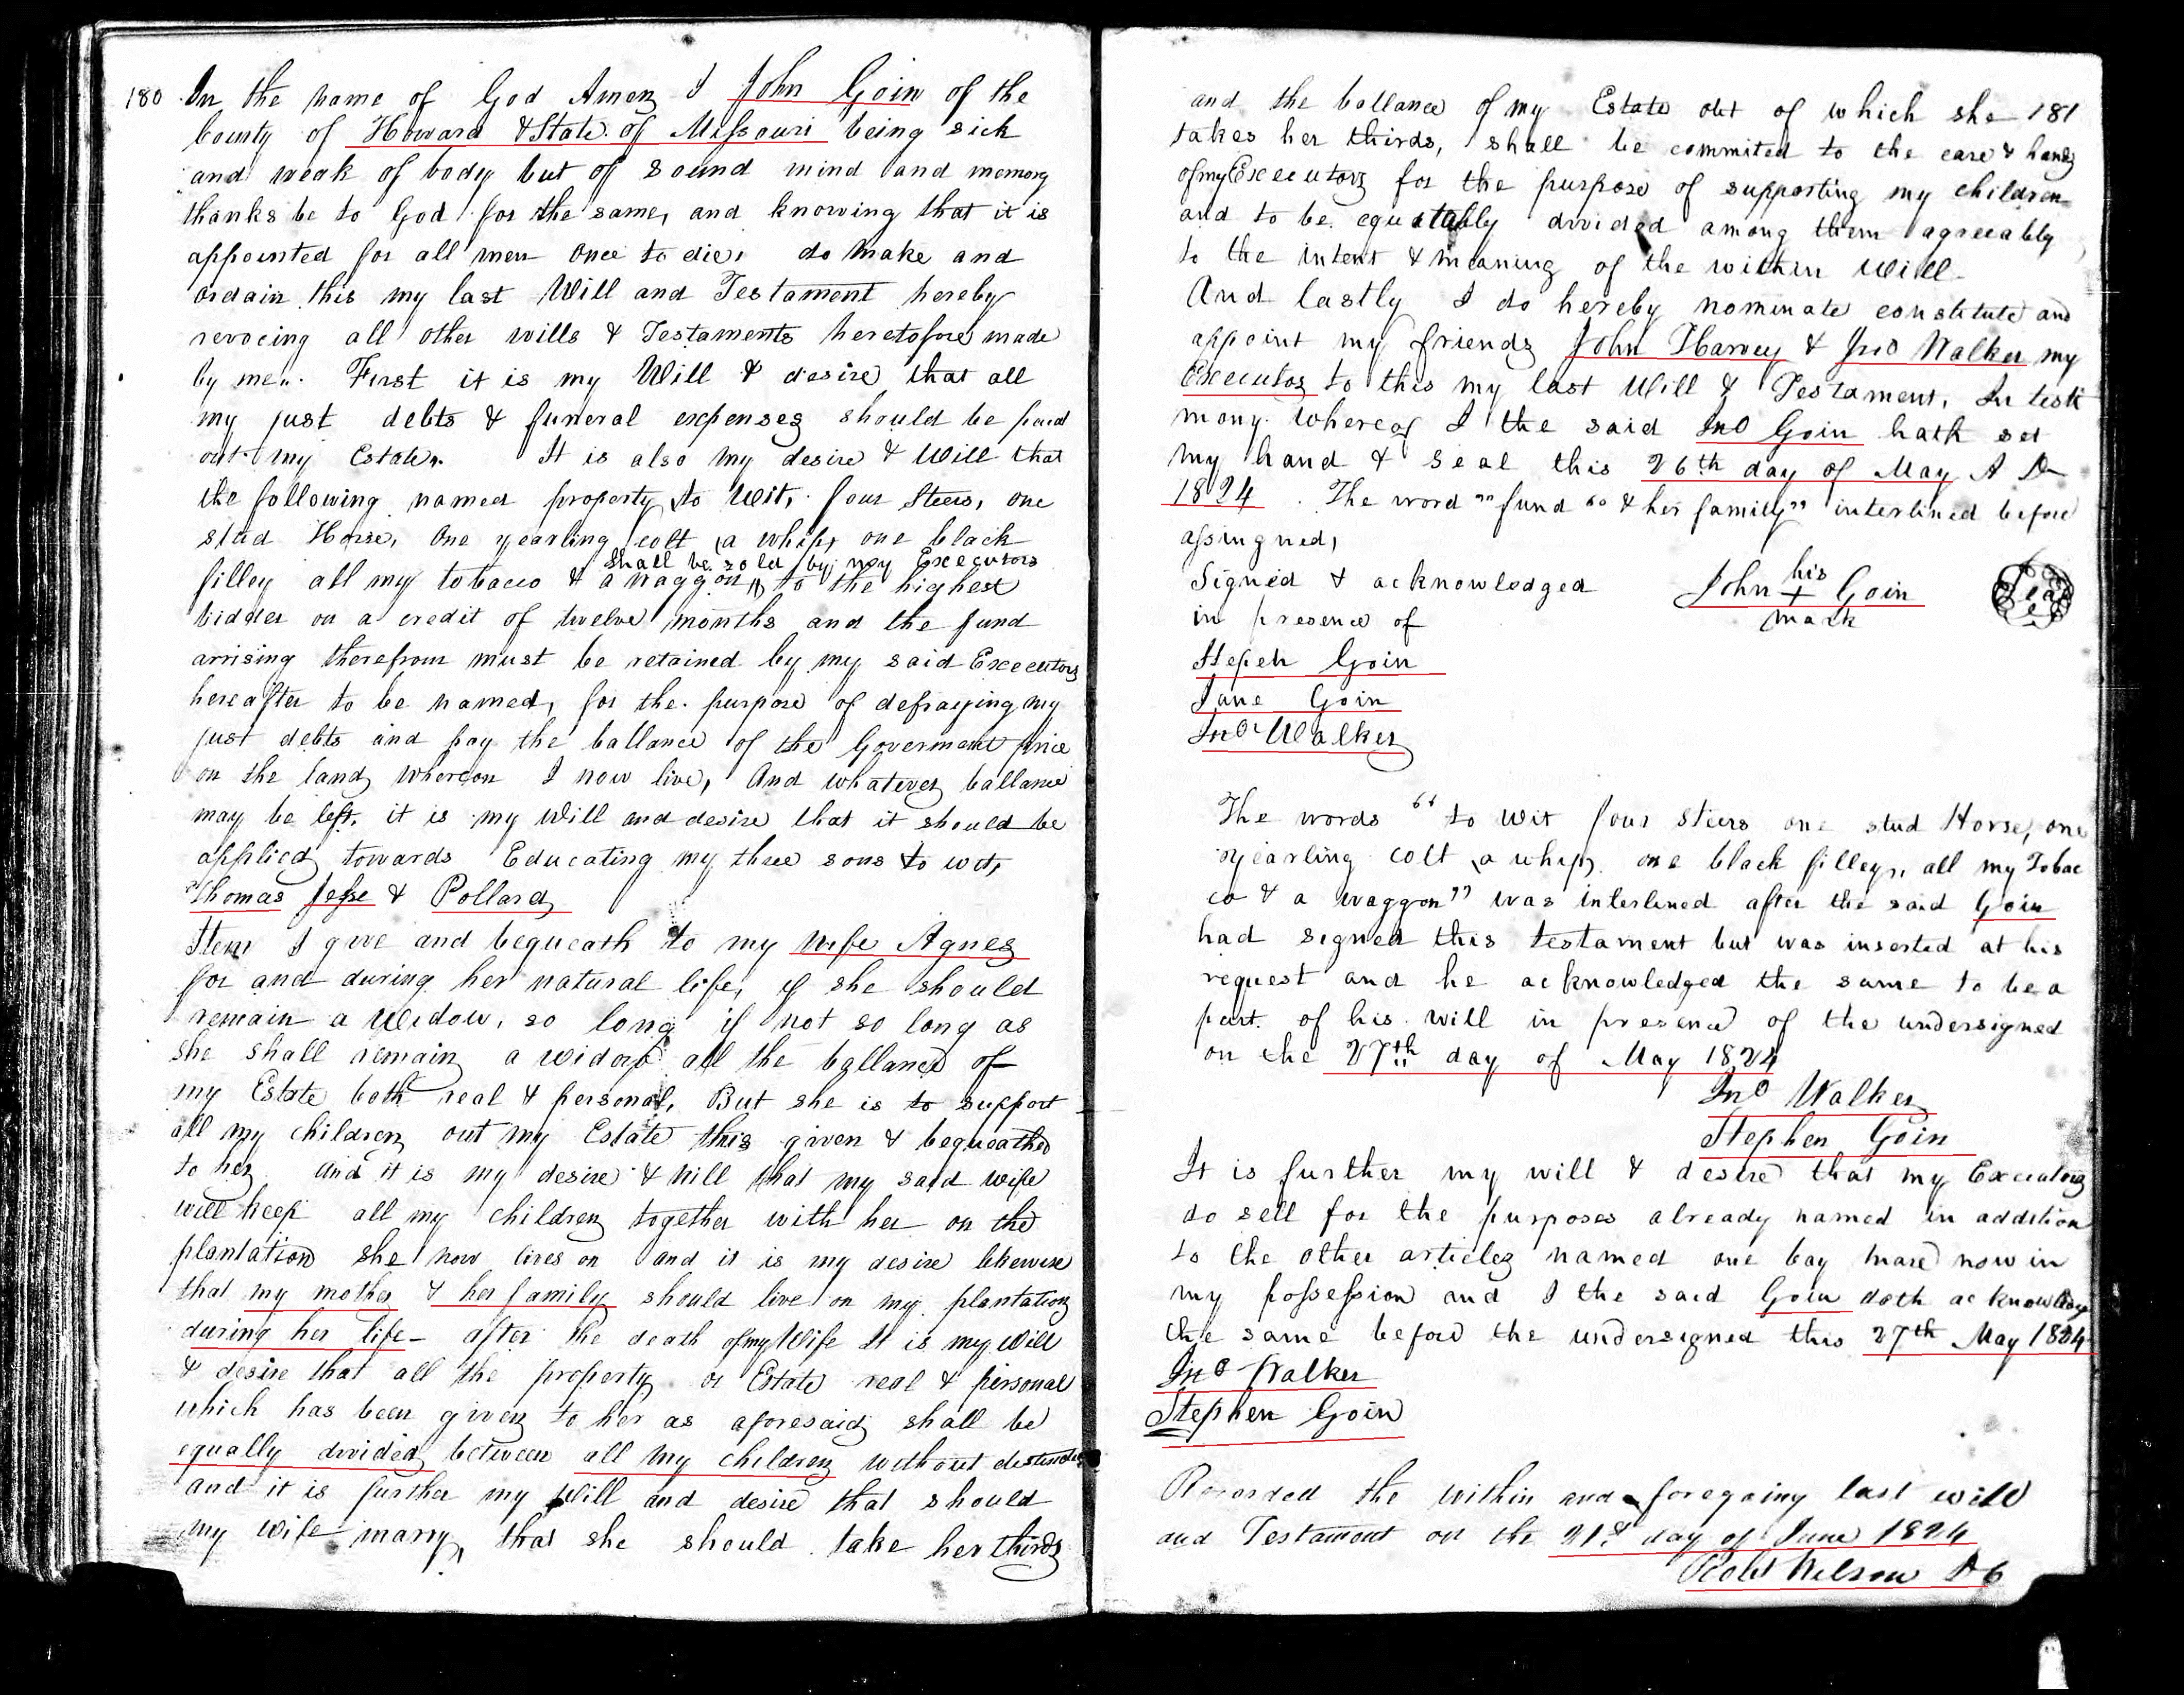 180 In the name of God Amen I John Goin of the
County of Howard & State of Missouri being sick
and weak of body but of sound mind and memory
thanks be to God for the same, and knowing that it is
appointed for all men once to die, do make and
ordain this my last Will and Testament hereby
revocing all other wills & Testaments heretofore made
by me. First it is my Will & desire that all
my just debts & funeral expenses should be paid
out my Estate. It is also my desire & Will that
the following named property to Wit, four Steers, one
stud Horse, One yearling colt a whip, one black
shall be sold by my Executors
filley all my tobacco & a waggon, to the highest
bidder on a credit of twelve months and the fund
arrising therefrom must be retained by my said Executors
hereafter to be named, for the purpose of defraying my
just debts and pay the ballance of the Goverment price
on the land whereon I now live, And whatever ballance
may be left, it is my Will and desire that it should be
applied towards Educating my three sons to wit,
Thomas Jesse & Pollard
Item I give and bequeath to my wife Agnes
for and during her natural life, if she should
remain a Widow, so long if not so long as
she shall remain a widow all the ballance of
my Estate both real & personal, But she is to support
all my children out my Estate this given & bequeathed
to her and it is my desire & will that my said wife
will keep all my children together with her on the
plantation she now lives on and it is my desire likewise
that my mother & her family should live on my plantation
during her life - after the death of my Wife It is my Will
& desire that all the property or Estate real & personal
which has been given to her as aforesaid shall be
equally divided between all my children without distinction
and it is further my Will and desire that should
my wife marry, that she should take her thirds
and the ballance of my Estate out of which she 181
takes her thirds, shall be commited to the care & hands
of my Executors for the purpose of supporting my children
and to be equitably divided among them agreeably
to the intent & meaning of the within Will -
And lastly I do hereby nominate constitute and
appoint my friends John Harvey & Jno Walker my
Executors to this my last Will & Testament, In testi
mony whereof I the said Jno Goin hath set
my hand & seal this 26th day of May A D
1824. The word "fund" "& her family" interlined before
assingned,
Signed & acknowledged John his + Goin Seal
in presence of mark
Stepeh Goin
Jane Goin
Jno Walker
The words "to wit four steers one stud Horse, one
yearling colt a whip, one black filley, all my Tobac
co & a waggon" was interlined after the said Goin
had signed this testament but was inserted at his
request and he acknowledged the same to be a
part of his will in presence of the undersigned
on the 27th day of May 1824
Jno Walker
Stephen Goin
It is further my will & desire that my Executors
do sell for the purposes already named in addition
to the other articles named one bay mare now in
my possession and I the said Goin doth acknowledge
the same before the undersigned this 27th May 1824
Jno Walker
Stephen Goin
Recorded the within and foregoing last will
and Testament on the 21st day of June 1824
Robt Wilson D C